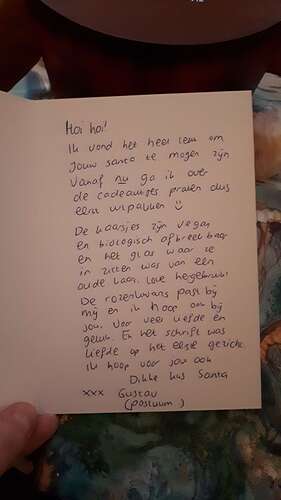 Hoi hoi!
Ik vond het heel leuk om
jouw santa te mogen zijn
Vanaf nu ga ik over
de cadeautjes praten dus
eerst uitpakken ☺
De kaarsjes zijn vegan
en biologisch afbreekbaar
en het glas waar ze
in zitten was van een
oude kaars. Love hergebruik!
De rozenkwarts past bij
mij en ik hoop ook bij
jou. Voor veel liefde en
geluk. En het schrift was
liefde op het eerste gezicht.
Ik hoop voor jou ook
Dikke kus Santa
xxx Gustav
(postuum)